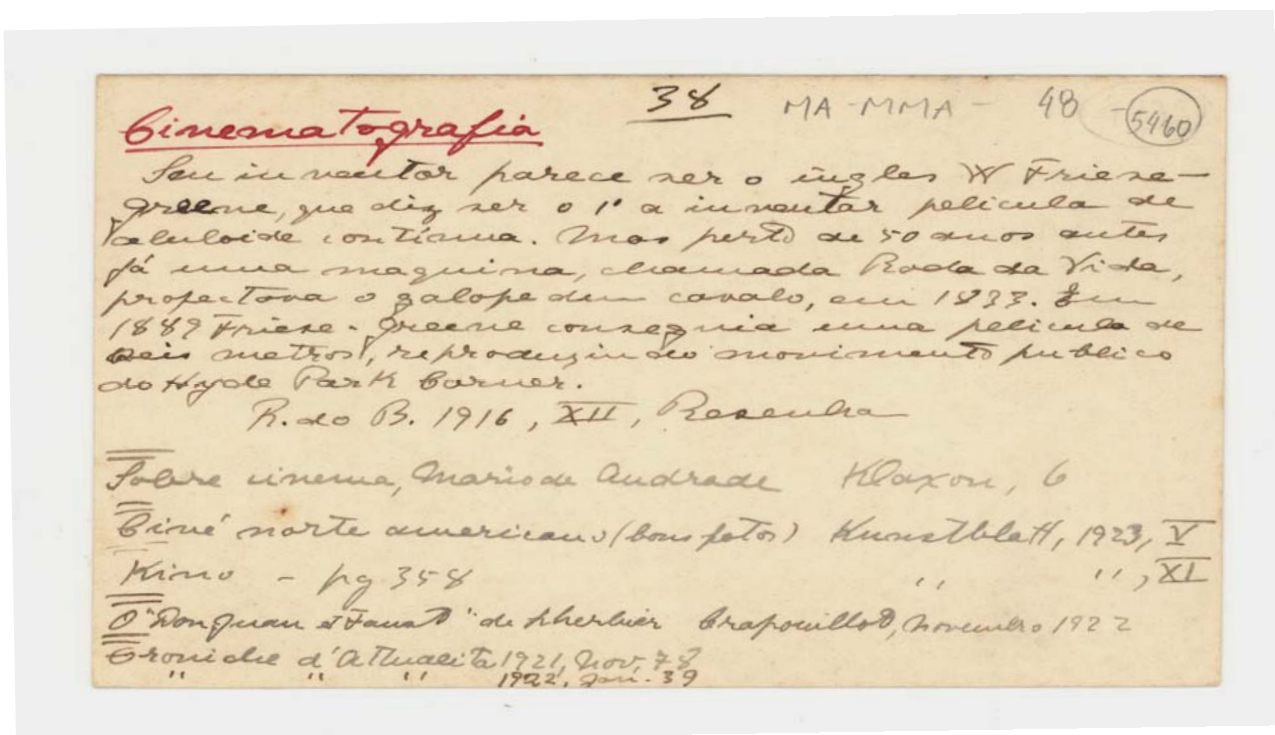 38 MA-MMA- 48 - 5460
Cinematografia
Seu inventor parece ser o ingles W Friese-
Greene, que diz ser o 1º a inventar pelicula de
celuloide contínua. Mas perto de 50 anos antes
já uma maquina, chamada Roda da Vida,
projectava o galope dum cavalo, em 1833. Em
1889 Friese-Greene conseguia uma pelicula de
seis metros, reproduzindo o movimento publico
do Hyde Park Corner.
R. do B. 1916, XII, Resenha
Sobre cinema, Mario de Andrade Klaxon, 6
Ciné norte americano (bons fotos) Kunstblatt, 1923, V
Kino - pg 358 " ", XI
O "Don Juan et Faust" de Lherbier Crapouillot, novembro 1922
Croniche d'Attualità 1921, Nov, 78
" " " 1922, Jan. 39